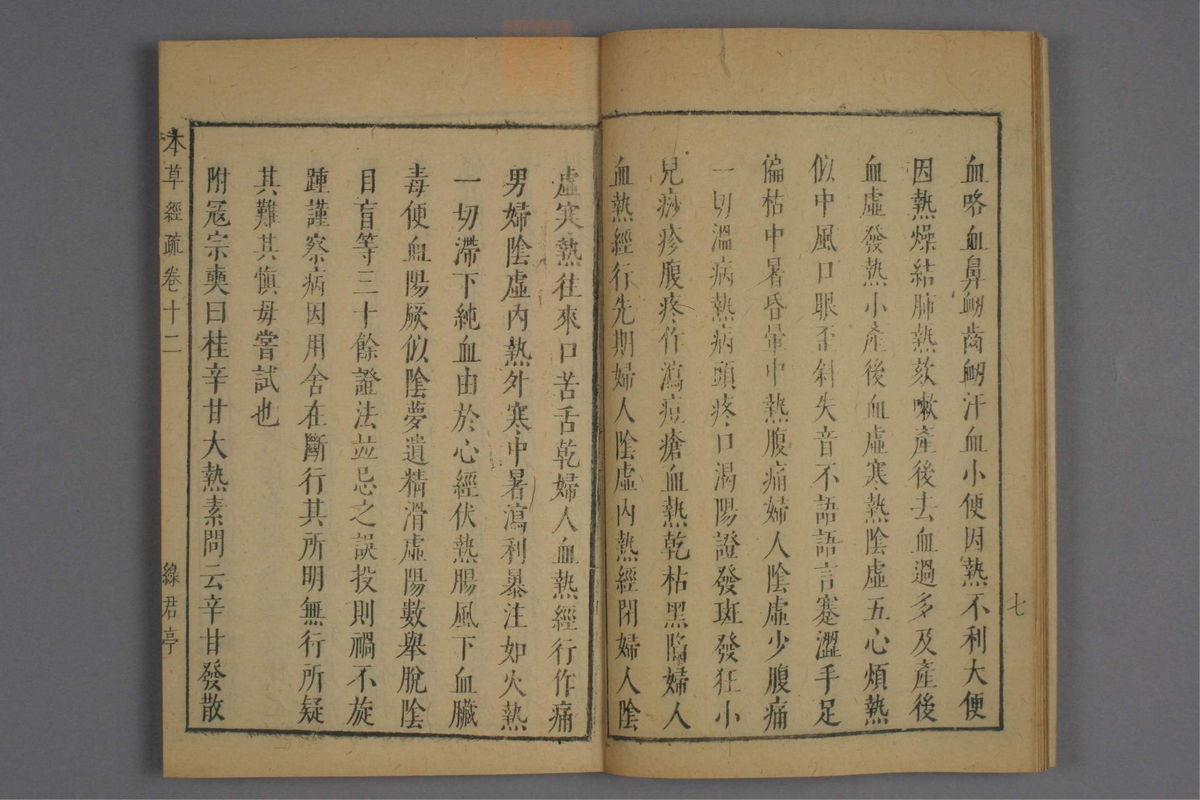 血咯血鼻衂齒衂汗血小便因熱不利大便
因熱燥結肺熱欬嗽產後去血過多及產後
血虛發熱小產後血虛寒熱陰虛五心煩熱
似中風口眼歪斜失音不語語言蹇澀手足
偏枯中暑昏暈中熱腹痛婦人陰虛少腹痛
一切溫病熱病頭疼口渴陽證發斑發狂小
兒痧疹腹疼作瀉痘瘡血熱乾枯黑陷婦人
血熱經行先期婦人陰虛內熱經閉婦人陰
七
虛寒熱往來口苦舌乾婦人血熱經行作痛
男婦陰虛內熱外寒中暑瀉利暴注如火熱
一切滯下純血由於心經伏熱腸風下血臟
毒便血陽厥似陰夢遺精滑虛陽數舉脫陰
目盲等三十餘證法並忌之誤投則禍不旋
踵謹察病因用舍在斷行其所明無行所疑
其難其慎毋嘗試也
附寇宗奭曰桂辛甘大熱素問云辛甘發散
本草經疏卷十二
綠君亭